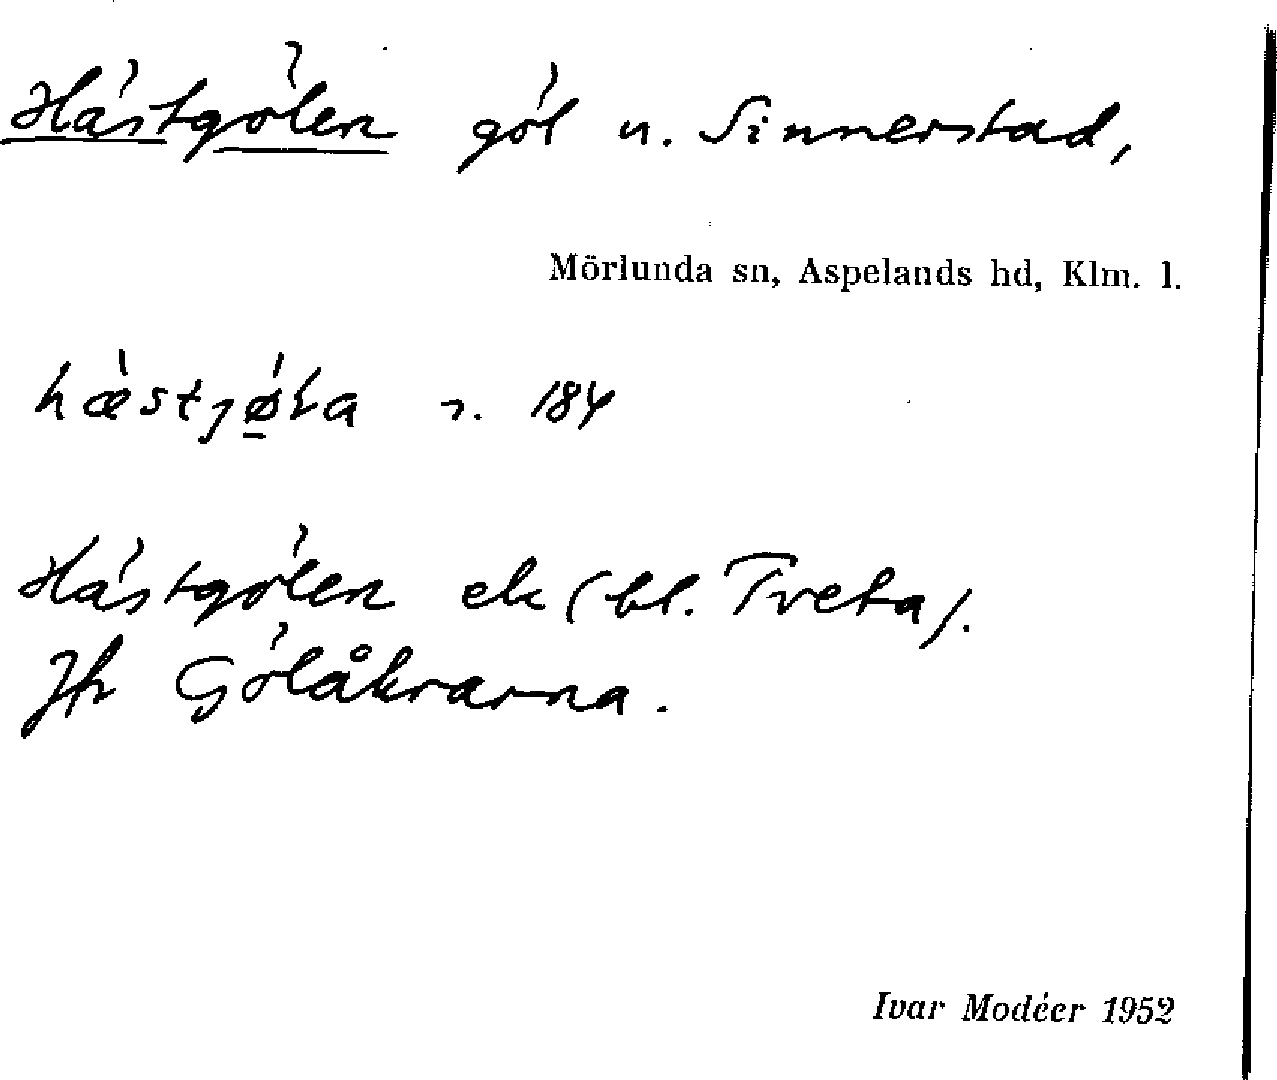 Hästgölen göl n. Sinnerstad,
Mörlunda sn, Aspelands hd, Klm. l.
184
Hästgölen ek (bl. Tveta).
Jfr Gölåkrarna.
Ivar Modéer 1952